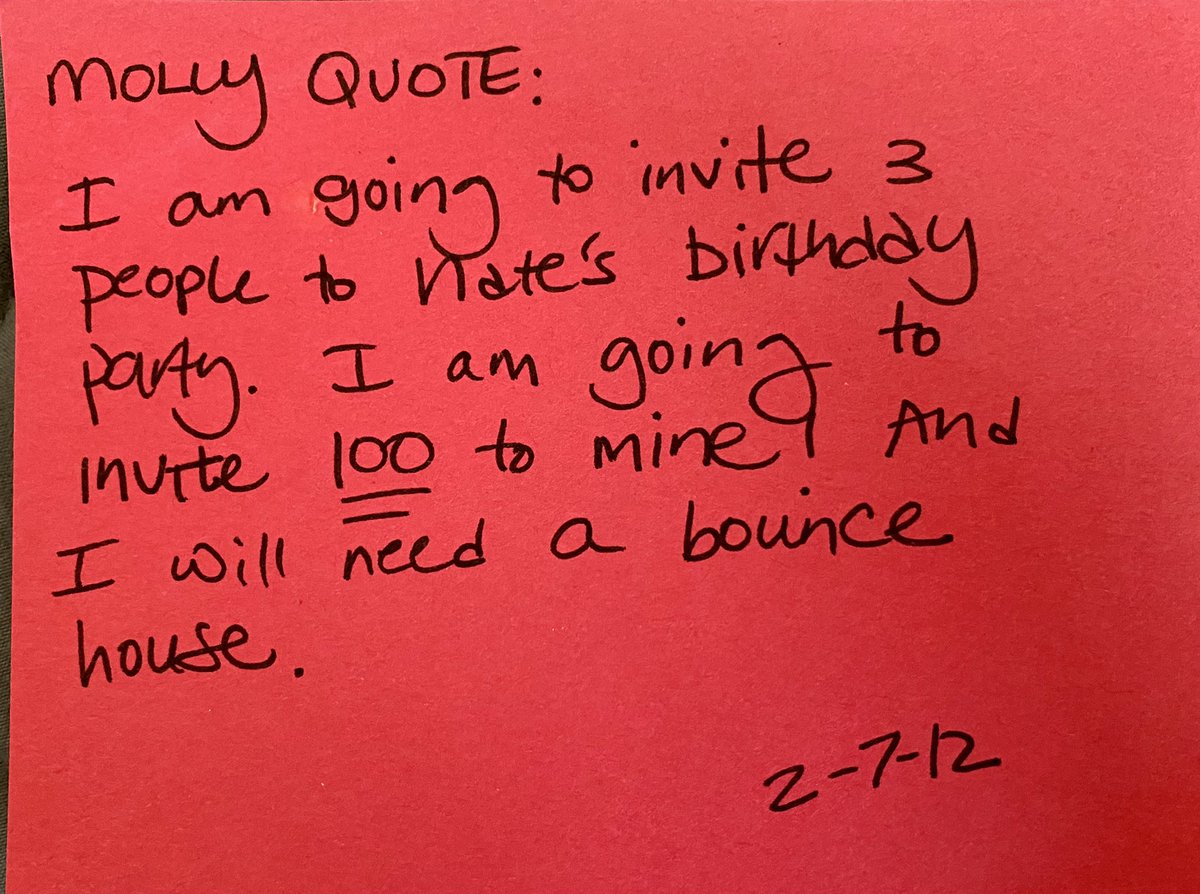 MOLLY QUOTE:
I am going to invite 3
people to Nate's birthday
party. I am going to
invite 100 to mine! And
I will need a bounce
house.
2-7-12